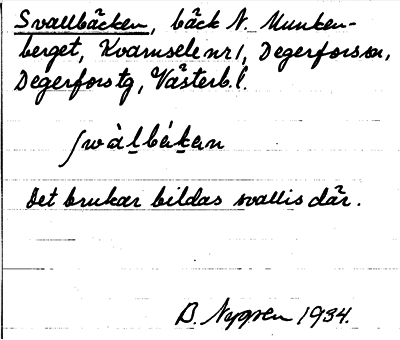 Svallbäcken, bäck N. Munken-
berget, Kvarnsele nr 1, Degerfors sn,
Degerfors tg, Västerb. l.
ʃwàlbékan
Det brukar bildas svallis där.
B. Nygren 1934.